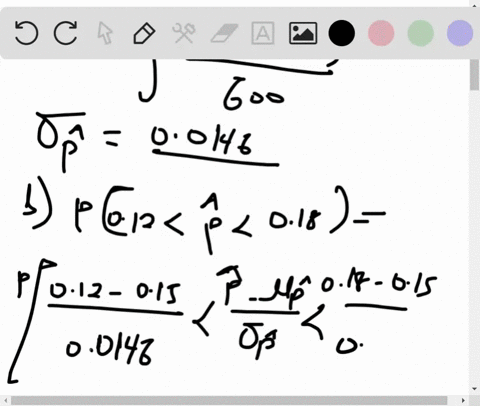 √ 600
σp̂ = 0.0146
b) P(0.12 < p̂ < 0.18) =
P[ 0.12 - 0.15 / 0.0146 < p̂ - μp̂ / σp̂ < 0.18 - 0.15 / 0.